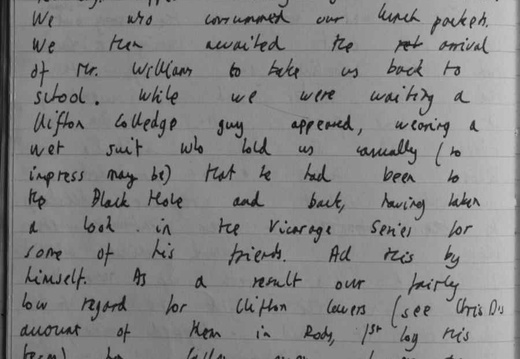 We who consummed our lunch packets.
We then awaited the ret arrival
of Mr. Williams to take us back to
school. While we were waiting a
Clifton Colledge guy appeared, wearing a
wet suit who told us casually (to
impress may be) that he had been to
the Black Hole and back, having taken
a look in the Vicarage Series for
some of his friends. Ad this by
himself. As a result our fairly
low regard for Clifton cavers (see Chris D's
account of them in Rods, 1st log this
term) has